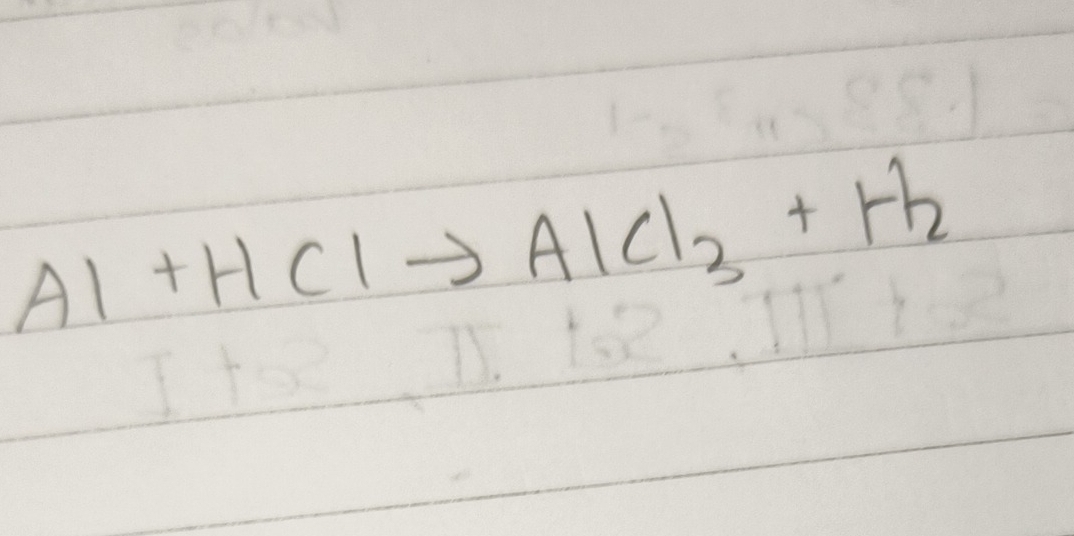 Al + HCl → AlCl₃ + H₂